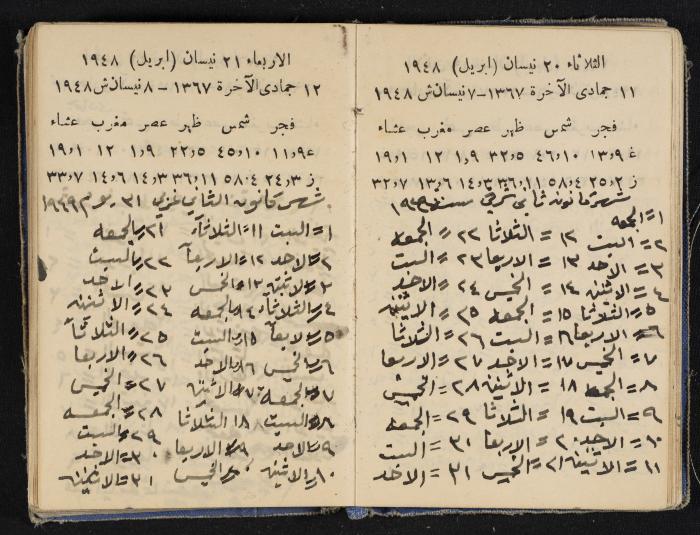 الثلاثاء ٢٠ نيسان (ابريل) ١٩٤٨
١١ جمادى الآخرة ١٣٦٧-٧نيسان ش ١٩٤٨
فجر شمس ظهر عصر مغرب عشاء
غ ٩و١٣ ١٠و٤٦ ٥و٣٢ ٩و١ ١٢ ١و١٩
ز ٢و٢٥ ٤و٥٨ ١١و٣٦ ٣و١٤ ٦و١٣ ٧و٣٢
شهر كانون ثاني شرقي سنة
١=الجمعه
٢=السبت ١٢=الثلاثا ٢٢=الجمعه
٣=الاحد ١٣=الاربعا ٢٣=السبت
٤=الاثنين ١٤=الخميس ٢٤=الاحد
٥=الثلاثا ١٥=الجمعه ٢٥=الاثنين
٦=الاربعا ١٦=السبت ٢٦=الثلاثا
٧=الخميس ١٧=الاحد ٢٧=الاربعا
٨=الجمعه ١٨=الاثنين ٢٨=الخميس
٩=السبت ١٩=الثلاثا ٢٩=الجمعه
١٠=الاحد ٢٠=الاربعا ٣١=السبت
١١=الاثنين ٢١=الخميس ٣١=الاحد
الاربعاء ٢١ نيسان (ابريل) ١٩٤٨
١٢ جمادى الآخرة ١٣٦٧ - ٨نيسان ش ١٩٤٨
فجر شمس ظهر عصر مغرب عشاء
غ ٩و١١ ١٠و٤٥ ٥و٢٢ ٩و١ ١٢ ١و١٩
ز ٣و٢٤ ٤و٥٨ ١١و٣٦ ٣و١٤ ٦و١٤ ٧و٣٣
شهر كانون الثاني غربي ٣١ يوم ١٩٤٩
١=السبت ١١=الثلاثآء ٢١=الجمعه
٢=الاحد ١٢=الاربعآ ٢٢=السبت
٣=الاثنين ١٣=الخميس ٢٣=الاحد
٤=الثلاثآء ١٤=الجمعه ٢٤=الاثنين
٥=الاربعآ ١٥=السبت ٢٥=الثلاثآ
٦=الخميس ١٦=الاحد ٢٦=الاربعا
٧=الجمعه ١٧=الاثنين ٢٧=الخميس
٨=السبت ١٨=الثلاثا ٢٨=الجمعه
٩=الاحد ١٩=الاربعا ٢٩=السبت
١٠=الاثنين ٢٠=الخميس ٣٠=الاحد
٣١=الاثنين